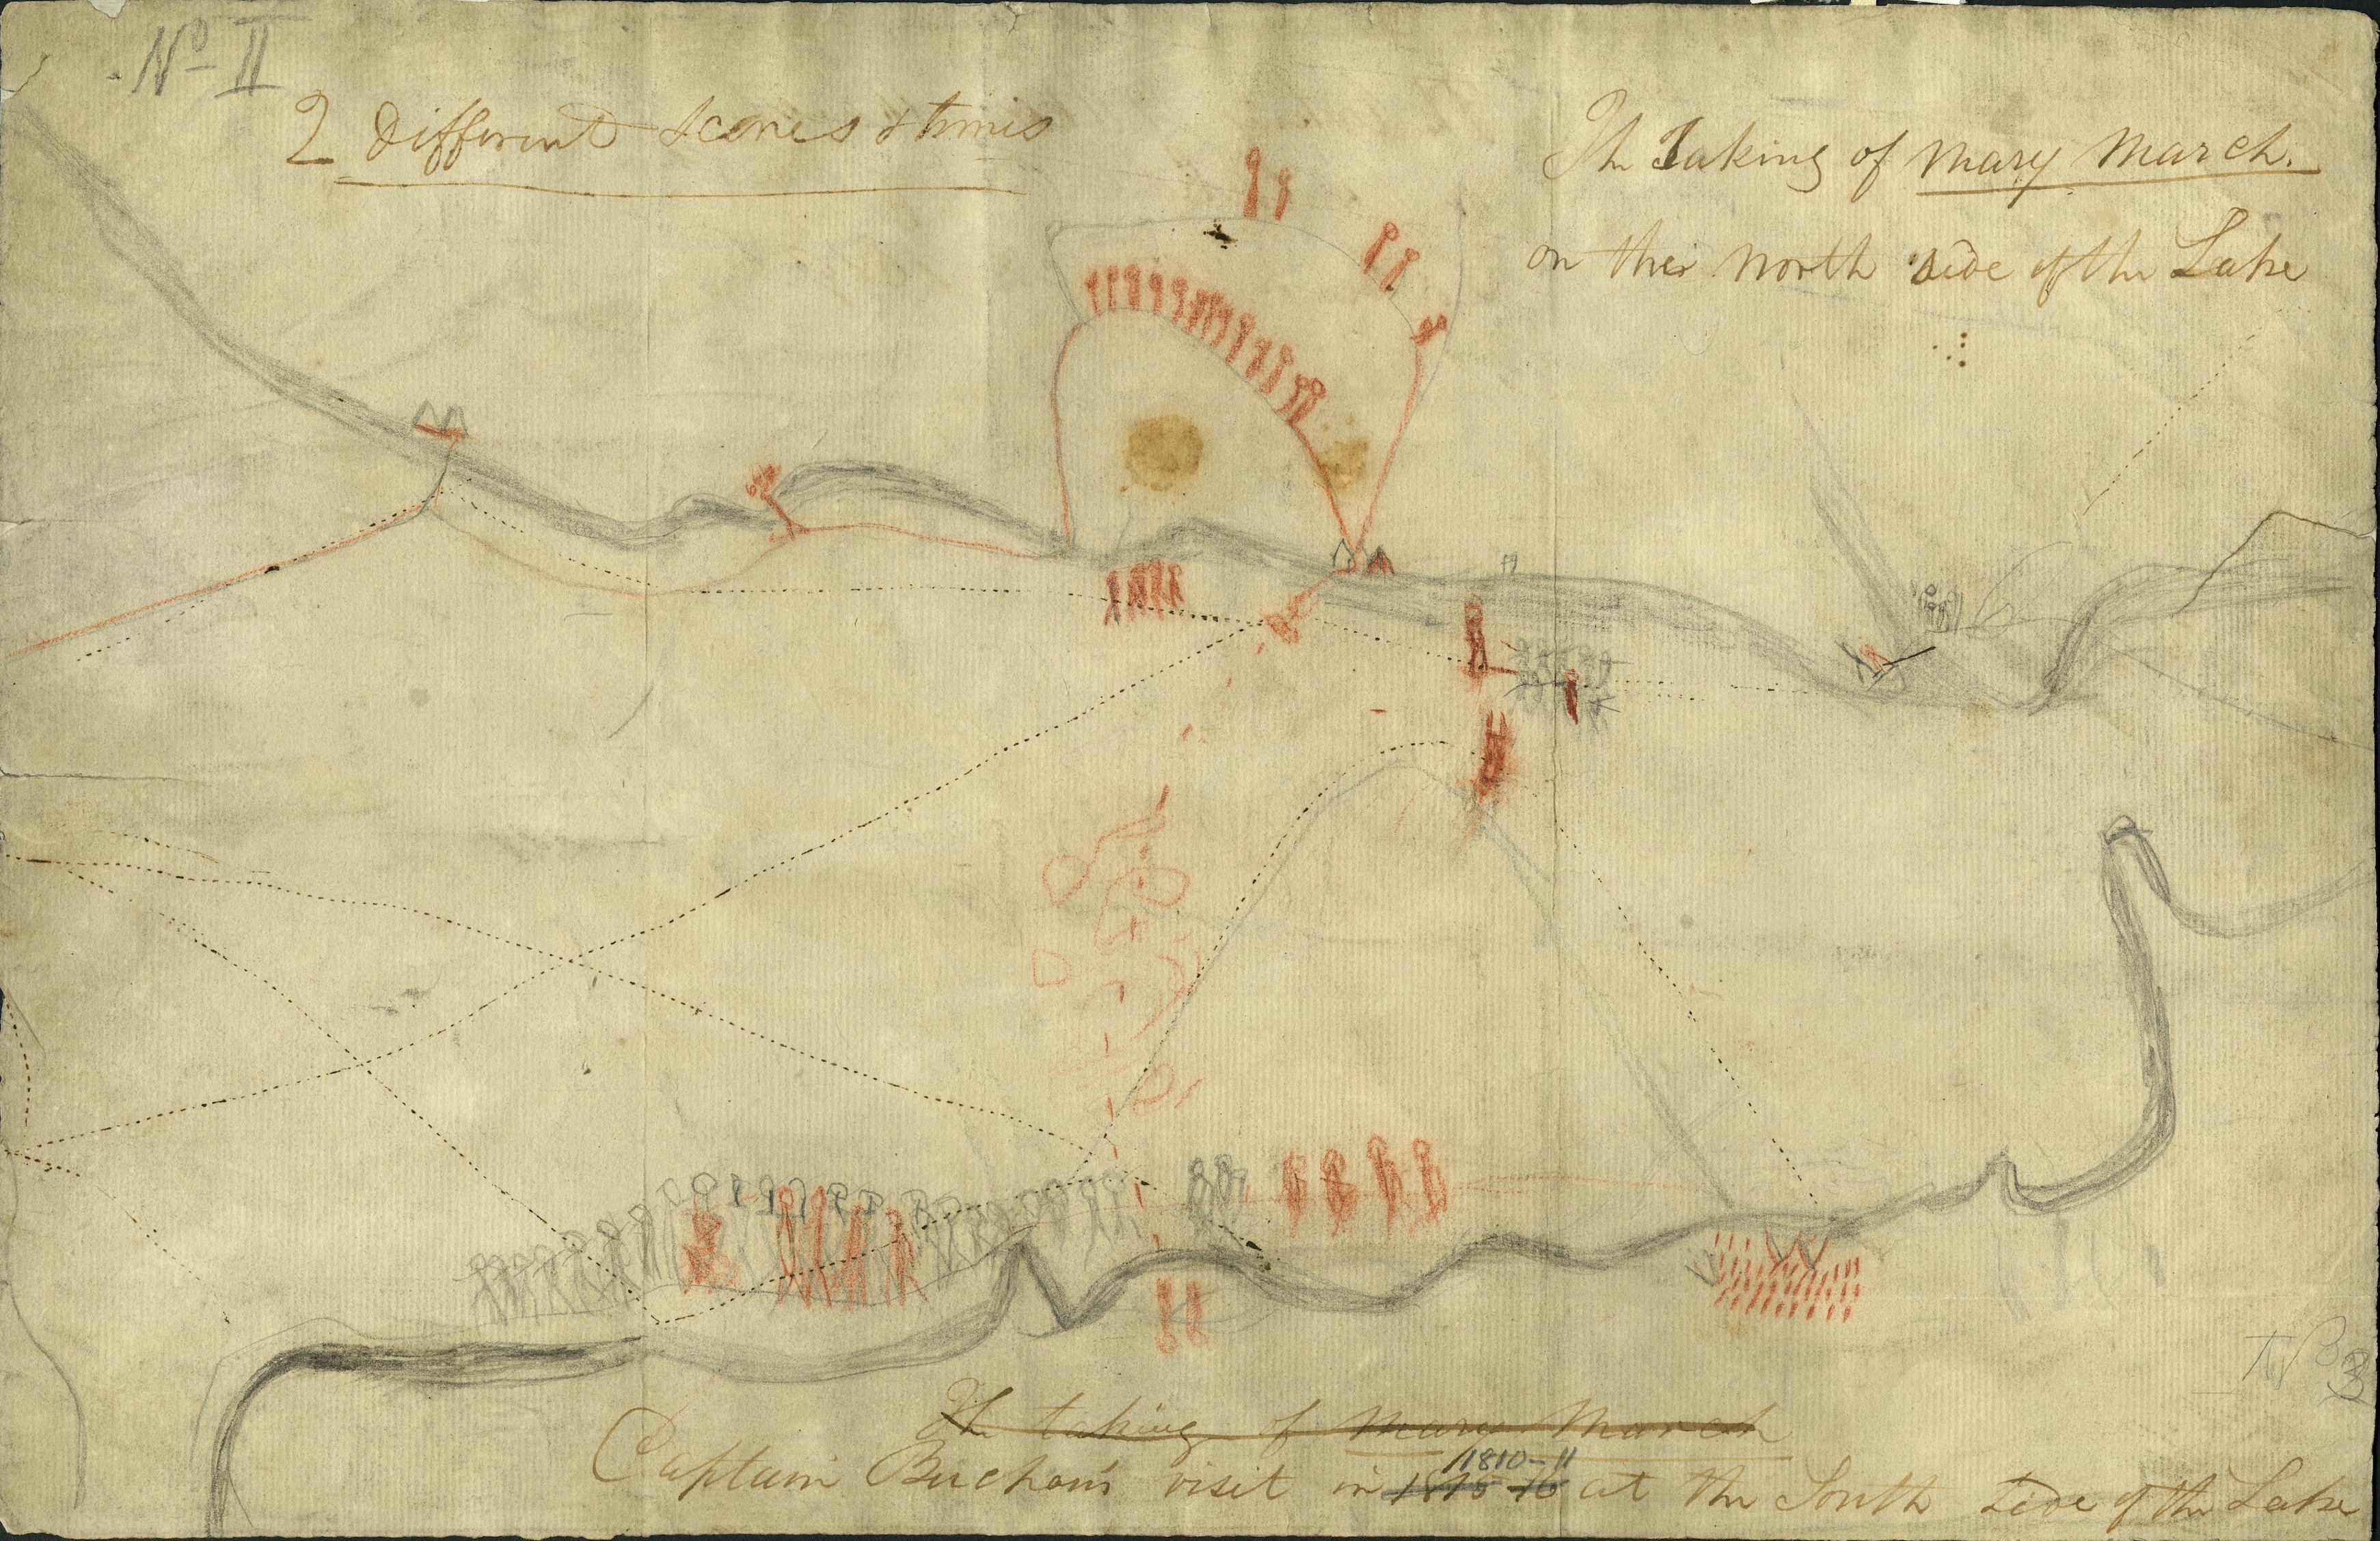 No II
2 Different Scenes & times
The Taking of Mary March.
on ther North side of the Lake
No 3
The taking of Mary March
1810-11
Captain Buchan's visit in 1815-16 at the South Side of the Lake